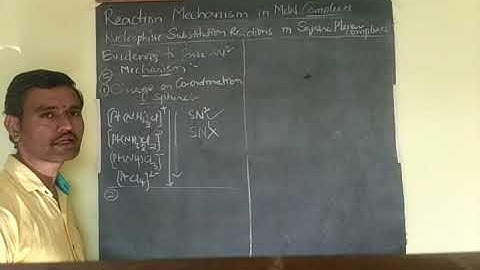 Reaction Mechanism in Metal Complexes
Nucleophilic Substitution Reactions in Square Planar Complexes
Evidences to SN²
Mechanism:-
① Charge on Co-ordination
Sphere:-
[Pt(NH₃)₃Cl]⁺ SN²✓
[Pt(NH₃)₂Cl₂] SN X
[Pt(NH₃)Cl₃]⁻
[PtCl₄]²⁻
②